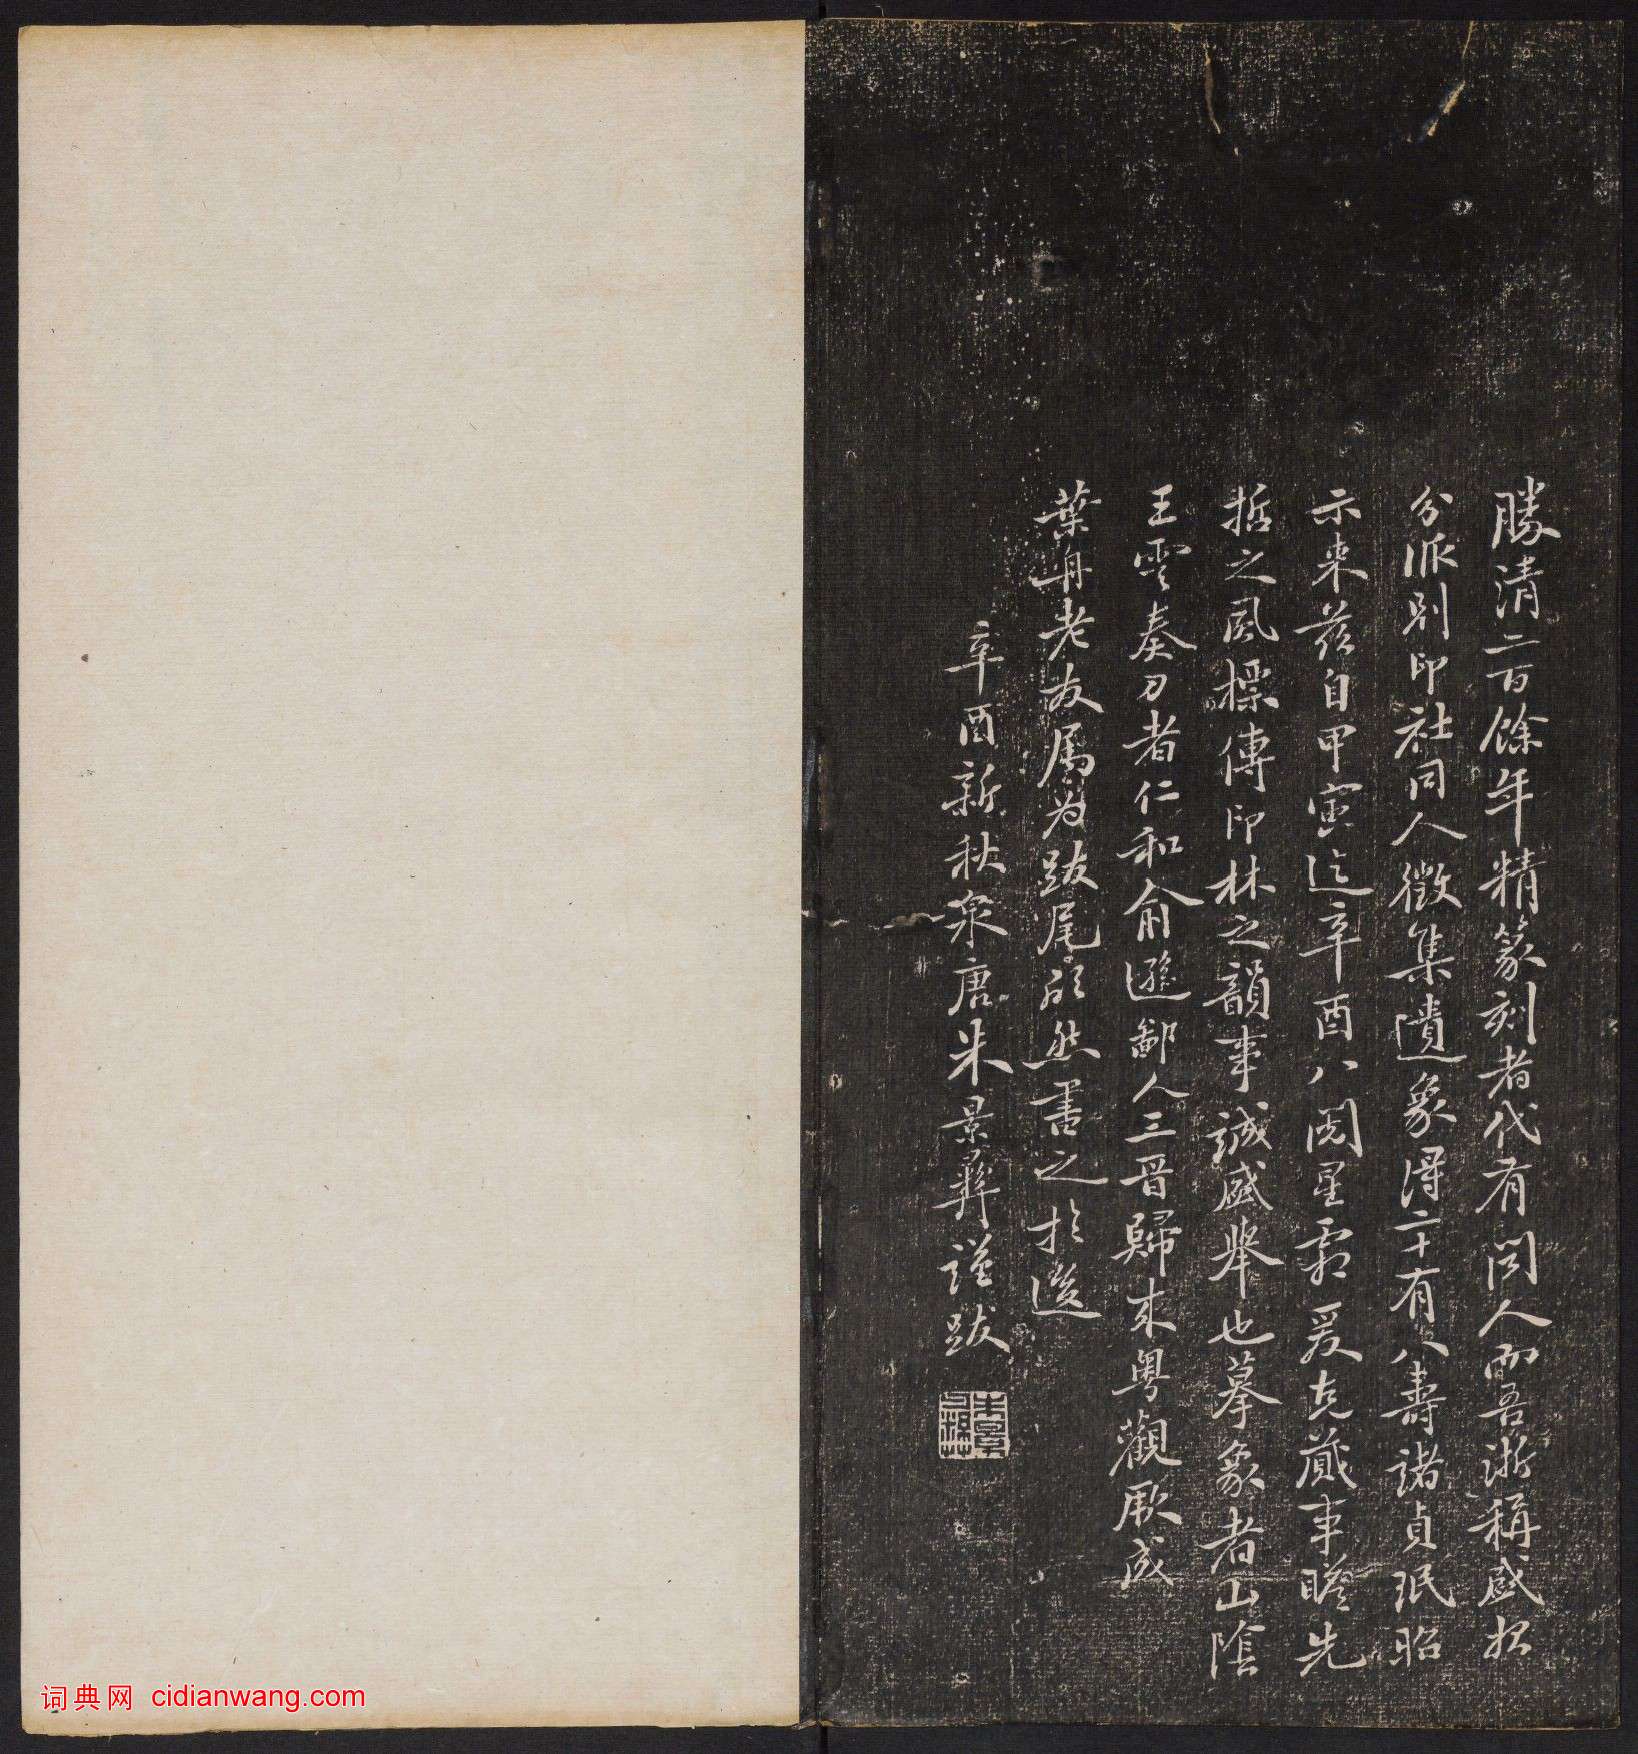 勝清二百餘年精篆刻者代有聞人而吾浙稱盛於
分派別印社同人徵集遺象得二十有八壽諸貞珉昭
示來茲自甲寅迄辛酉八閱星霜爰克蕆事瞻先
哲之風標傳印林之韻事誠盛舉也摹象者山陰
王雲奏刀者仁和俞遜鄙人三晉歸來粵觀厥成
葉舟老友属为跋尾欣然書之於邊
辛酉新秋泉唐朱景彝謹跋
词典网 cidianwang.com